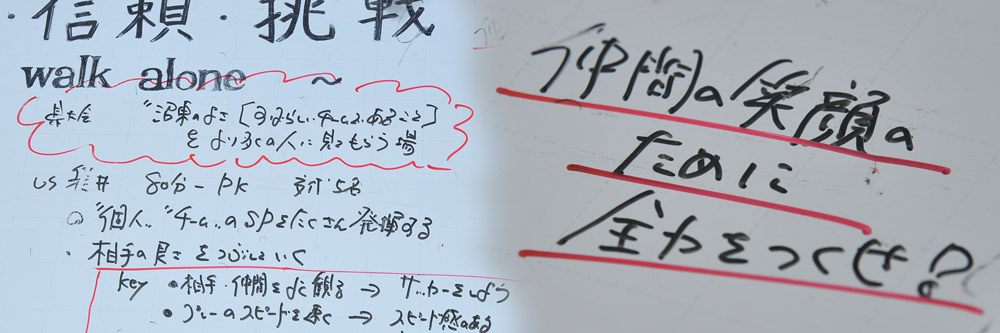 ・信頼・挑戦
walk alone 〜
県大会 "沼東のよさ[すばらしいチームであること]
をより多くの人に見てもらう場
US 桜井 80分-PK 交代5名
○"個人""チーム"のSPをたくさん発揮する
・相手の良さをつぶしていく
key ●相手・仲間をよく観る → サッカーをしよう
●プレーのスピードを速く → スピード感のある
仲間の笑顔の
ために
全力をつくせ?